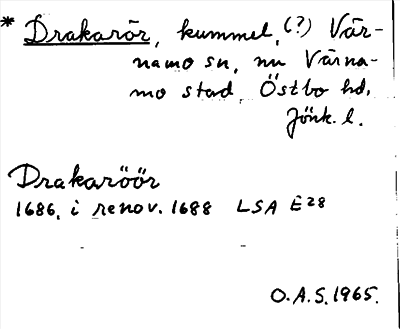 * Drakarör, kummel, (?) Vär-
namo sn, nu Värna-
mo stad, Östbo hd,
Jönk. l.
Drakaröör
1686, i renov. 1688 LSA E28
O.A.S. 1965.